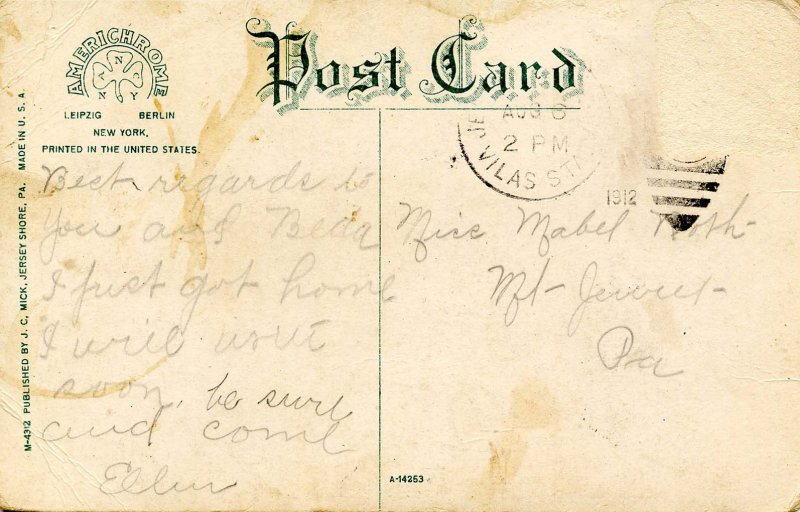 AMERICHROME
A N N Y
Post Card
LEIPZIG BERLIN
NEW YORK.
PRINTED IN THE UNITED STATES.
M-4312 PUBLISHED BY J. C. MICK, JERSEY SHORE, PA. MADE IN U. S. A.
JE
AUG 6
2 PM
VILAS STA
1912
Best regards to
You and Beda
I just got home
I will write
soon. be sure
and come
Ellen
Miss Mabel
Mt- Jewett-
Pa
A-14253